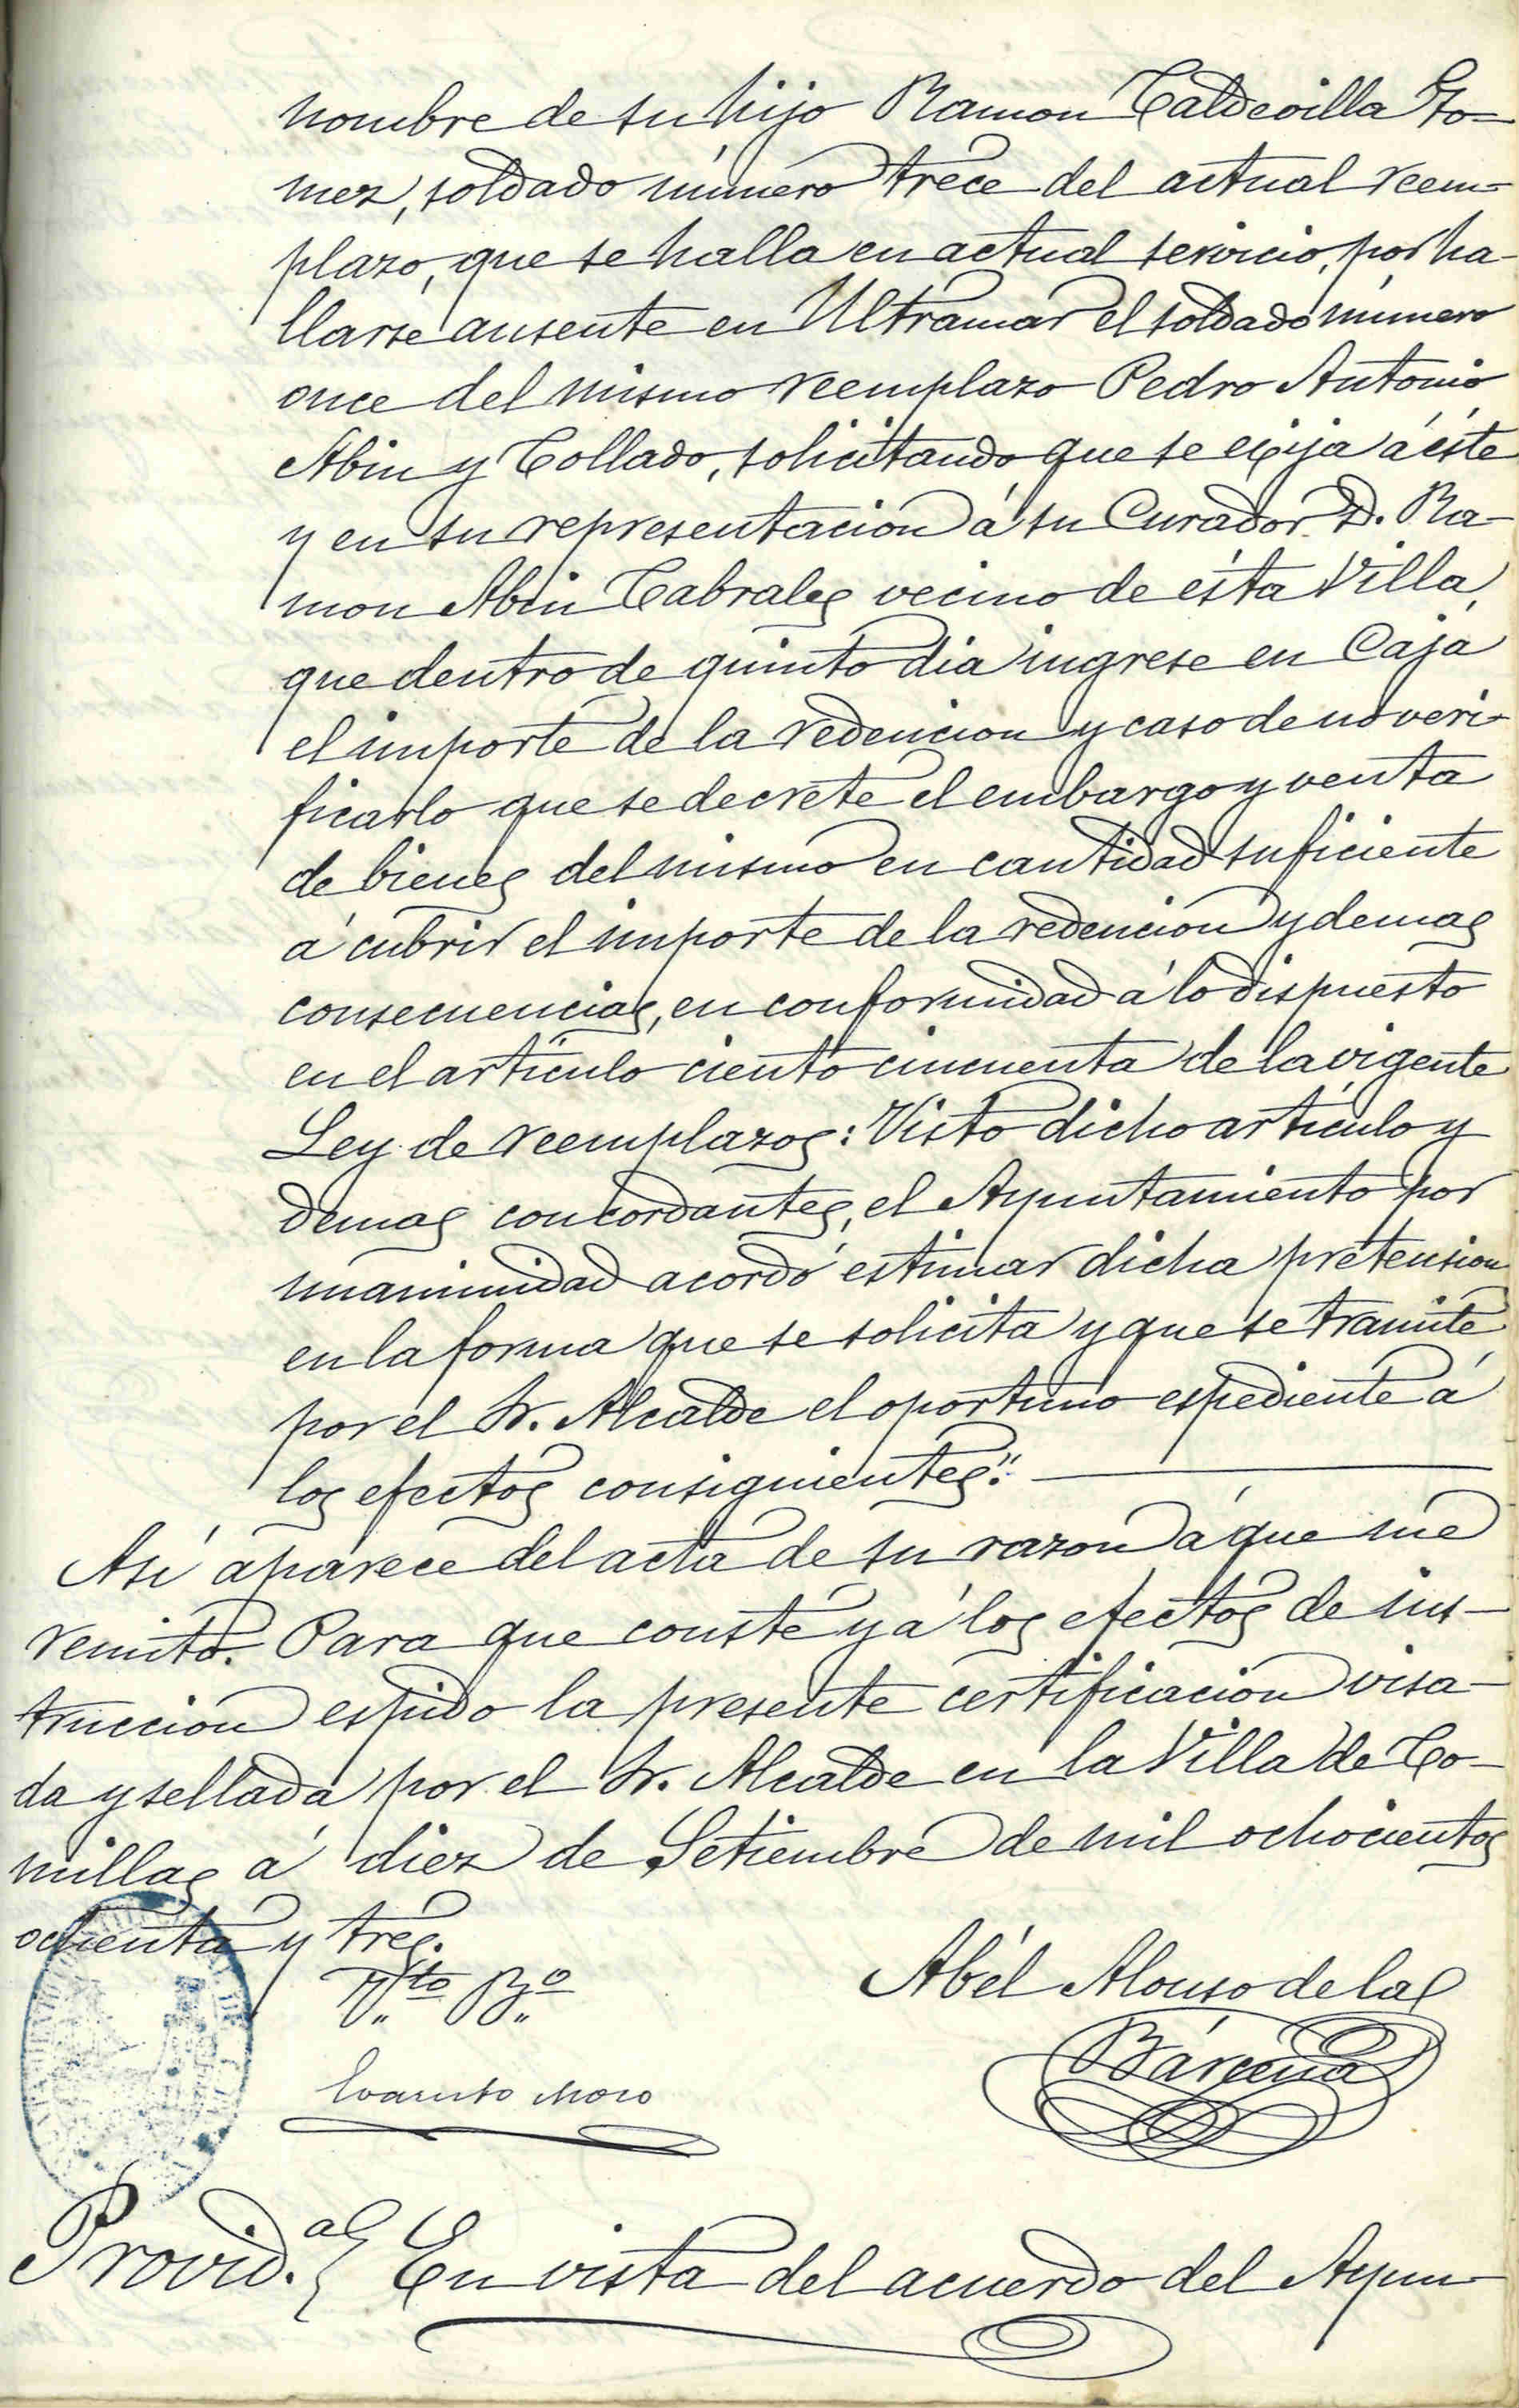 nombre de su hijo Ramon Caldevilla Go-
mez, soldado número trece del actual reem-
plazo, que se halla en actual servicio, por ha-
llarse ausente en Ultramar el soldado número
once del mismo reemplazo Pedro Antonio
Abin y Collado, solicitando que se exija á éste
y en su representacion á su Curador D. Ra-
mon Abin Cabrales vecino de ésta Villa,
que dentro de quinto dia ingrese en Caja
el importe de la redencion y caso de no veri-
ficarlo que se decrete el embargo y venta
de bienes del mismo en cantidad suficiente
á cubrir el importe de la redencion y demas
consecuencias, en conformidad á lo dispuesto
en el artículo ciento cincuenta de la vigente
Ley de reemplazos: Visto dicho artículo y
demas concordantes, el Ayuntamiento por
unanimidad acordó estimar dicha pretension
en la forma que se solicita y que se tramite
por el Sr. Alcalde el oportuno espediente á
los efectos consiguientes."
Así aparece del acta de su razon á que me
remito. Para que conste y á los efectos de ins-
truccion espido la presente certificacion visa-
da y sellada por el Sr. Alcalde en la Villa de Co-
millas á diez de Setiembre de mil ochocientos
ochenta y tres.
V.to B.o
Abél Alonso de la
Bárcena
Evaristo Moro
Provid.a} En vista del acuerdo del Ayun-